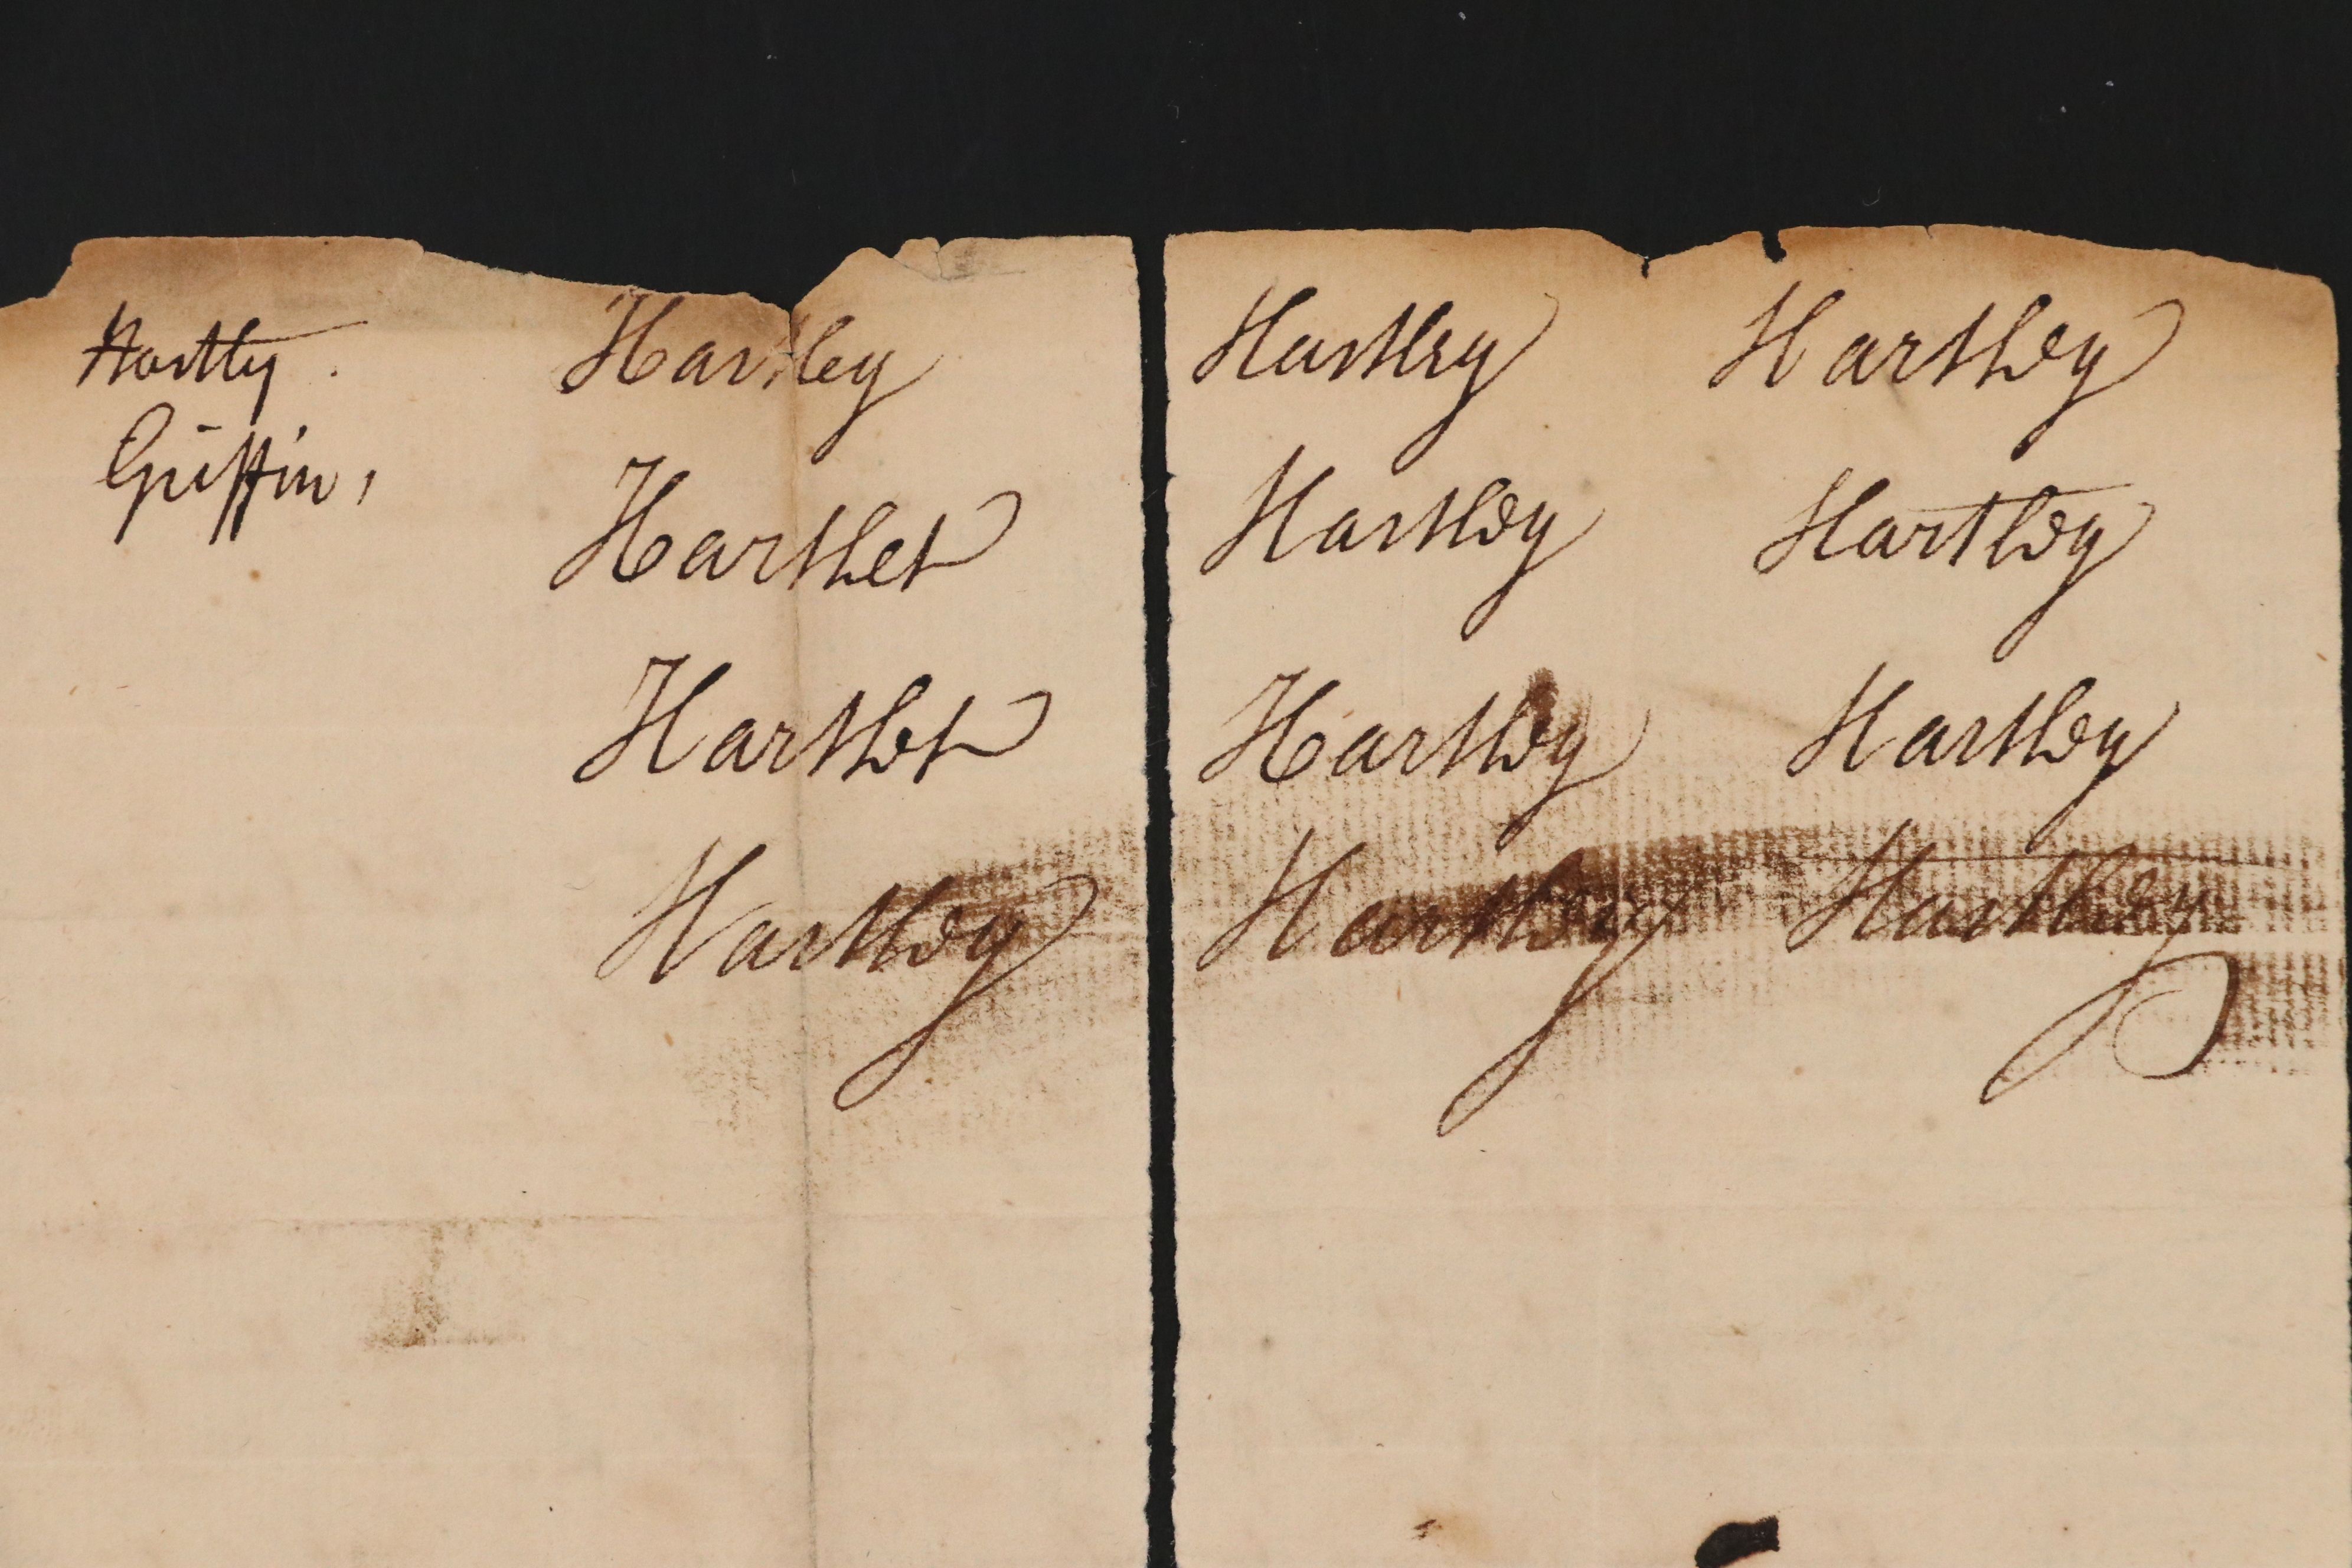 Hartly.
Griffin,
Hartley
Hartlet
Hartlet
Hartley
Hartley
Hartley
Hartley
Hartley
Hartley
Hartley
Hartley
Hartley